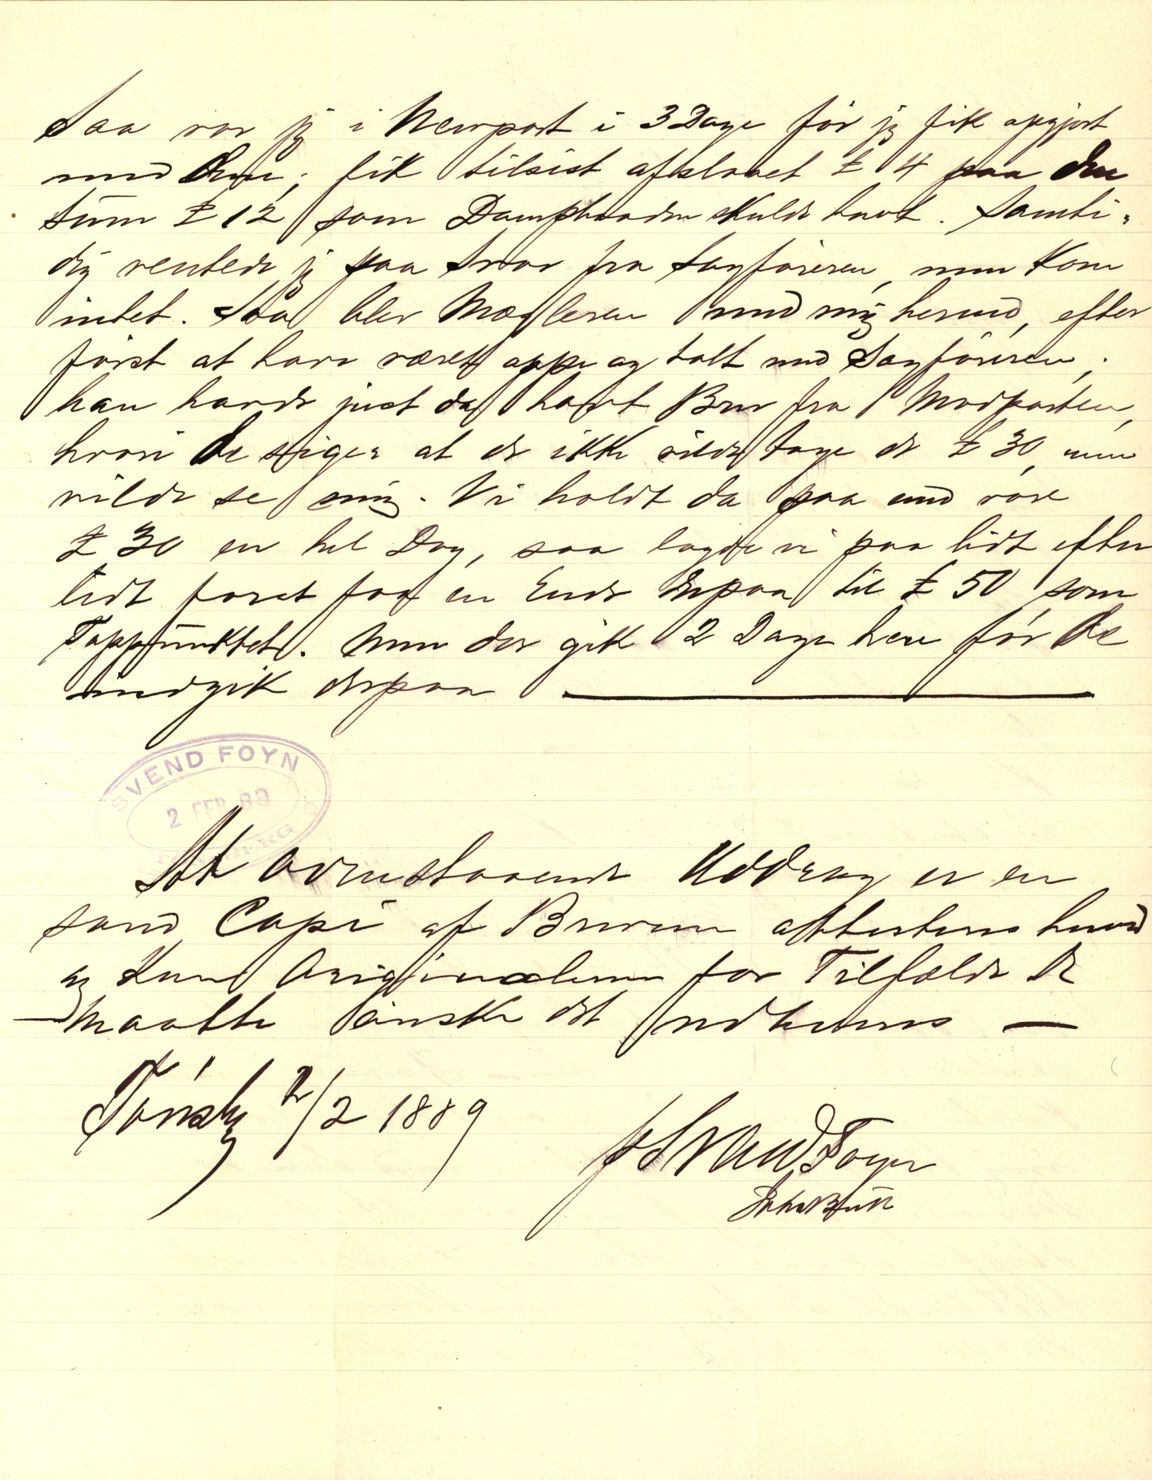 Saa var jeg i Newport i 3 Dage før jeg fik opgjort
med dem; fik tilsist afslaaet £ 4 paa den
Sum £ 12 som Dampbaaden skulde havt. Samti-
dig ventede jeg paa Svar fra Sagføreren, men kom
intet. Saa blev Mægleren med mig herned, efter
først at have været oppe og talt med Sagføreren,
han havde just da havt Brev fra Modparten,
hvori de siger at de ikke vilde tage de £ 30, men
vilde se mig. Vi holdt da paa med vore
£ 30 en hel Dag, saa lagde vi paa lidt efter
lidt foret faa en Ende derpaa til £ 50 som
Toppunktet. Men der gik 2 Dage hen før de
indgik derpaa
SVEND FOYN
2 FEB. 89
TØNSBERG
At ovenstaaende Uddrag er en
sand Copi af Breven attesteres herved
og kan Originalen for Tilfælde de
maatte ønske det indhenes
Tønsbg 2/2 1889
p Svend Foyn